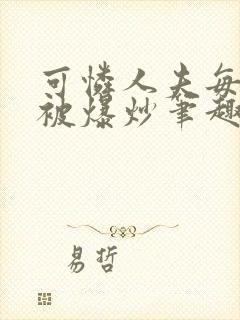 可怜人夫每
被爆炒笔趣
易哲